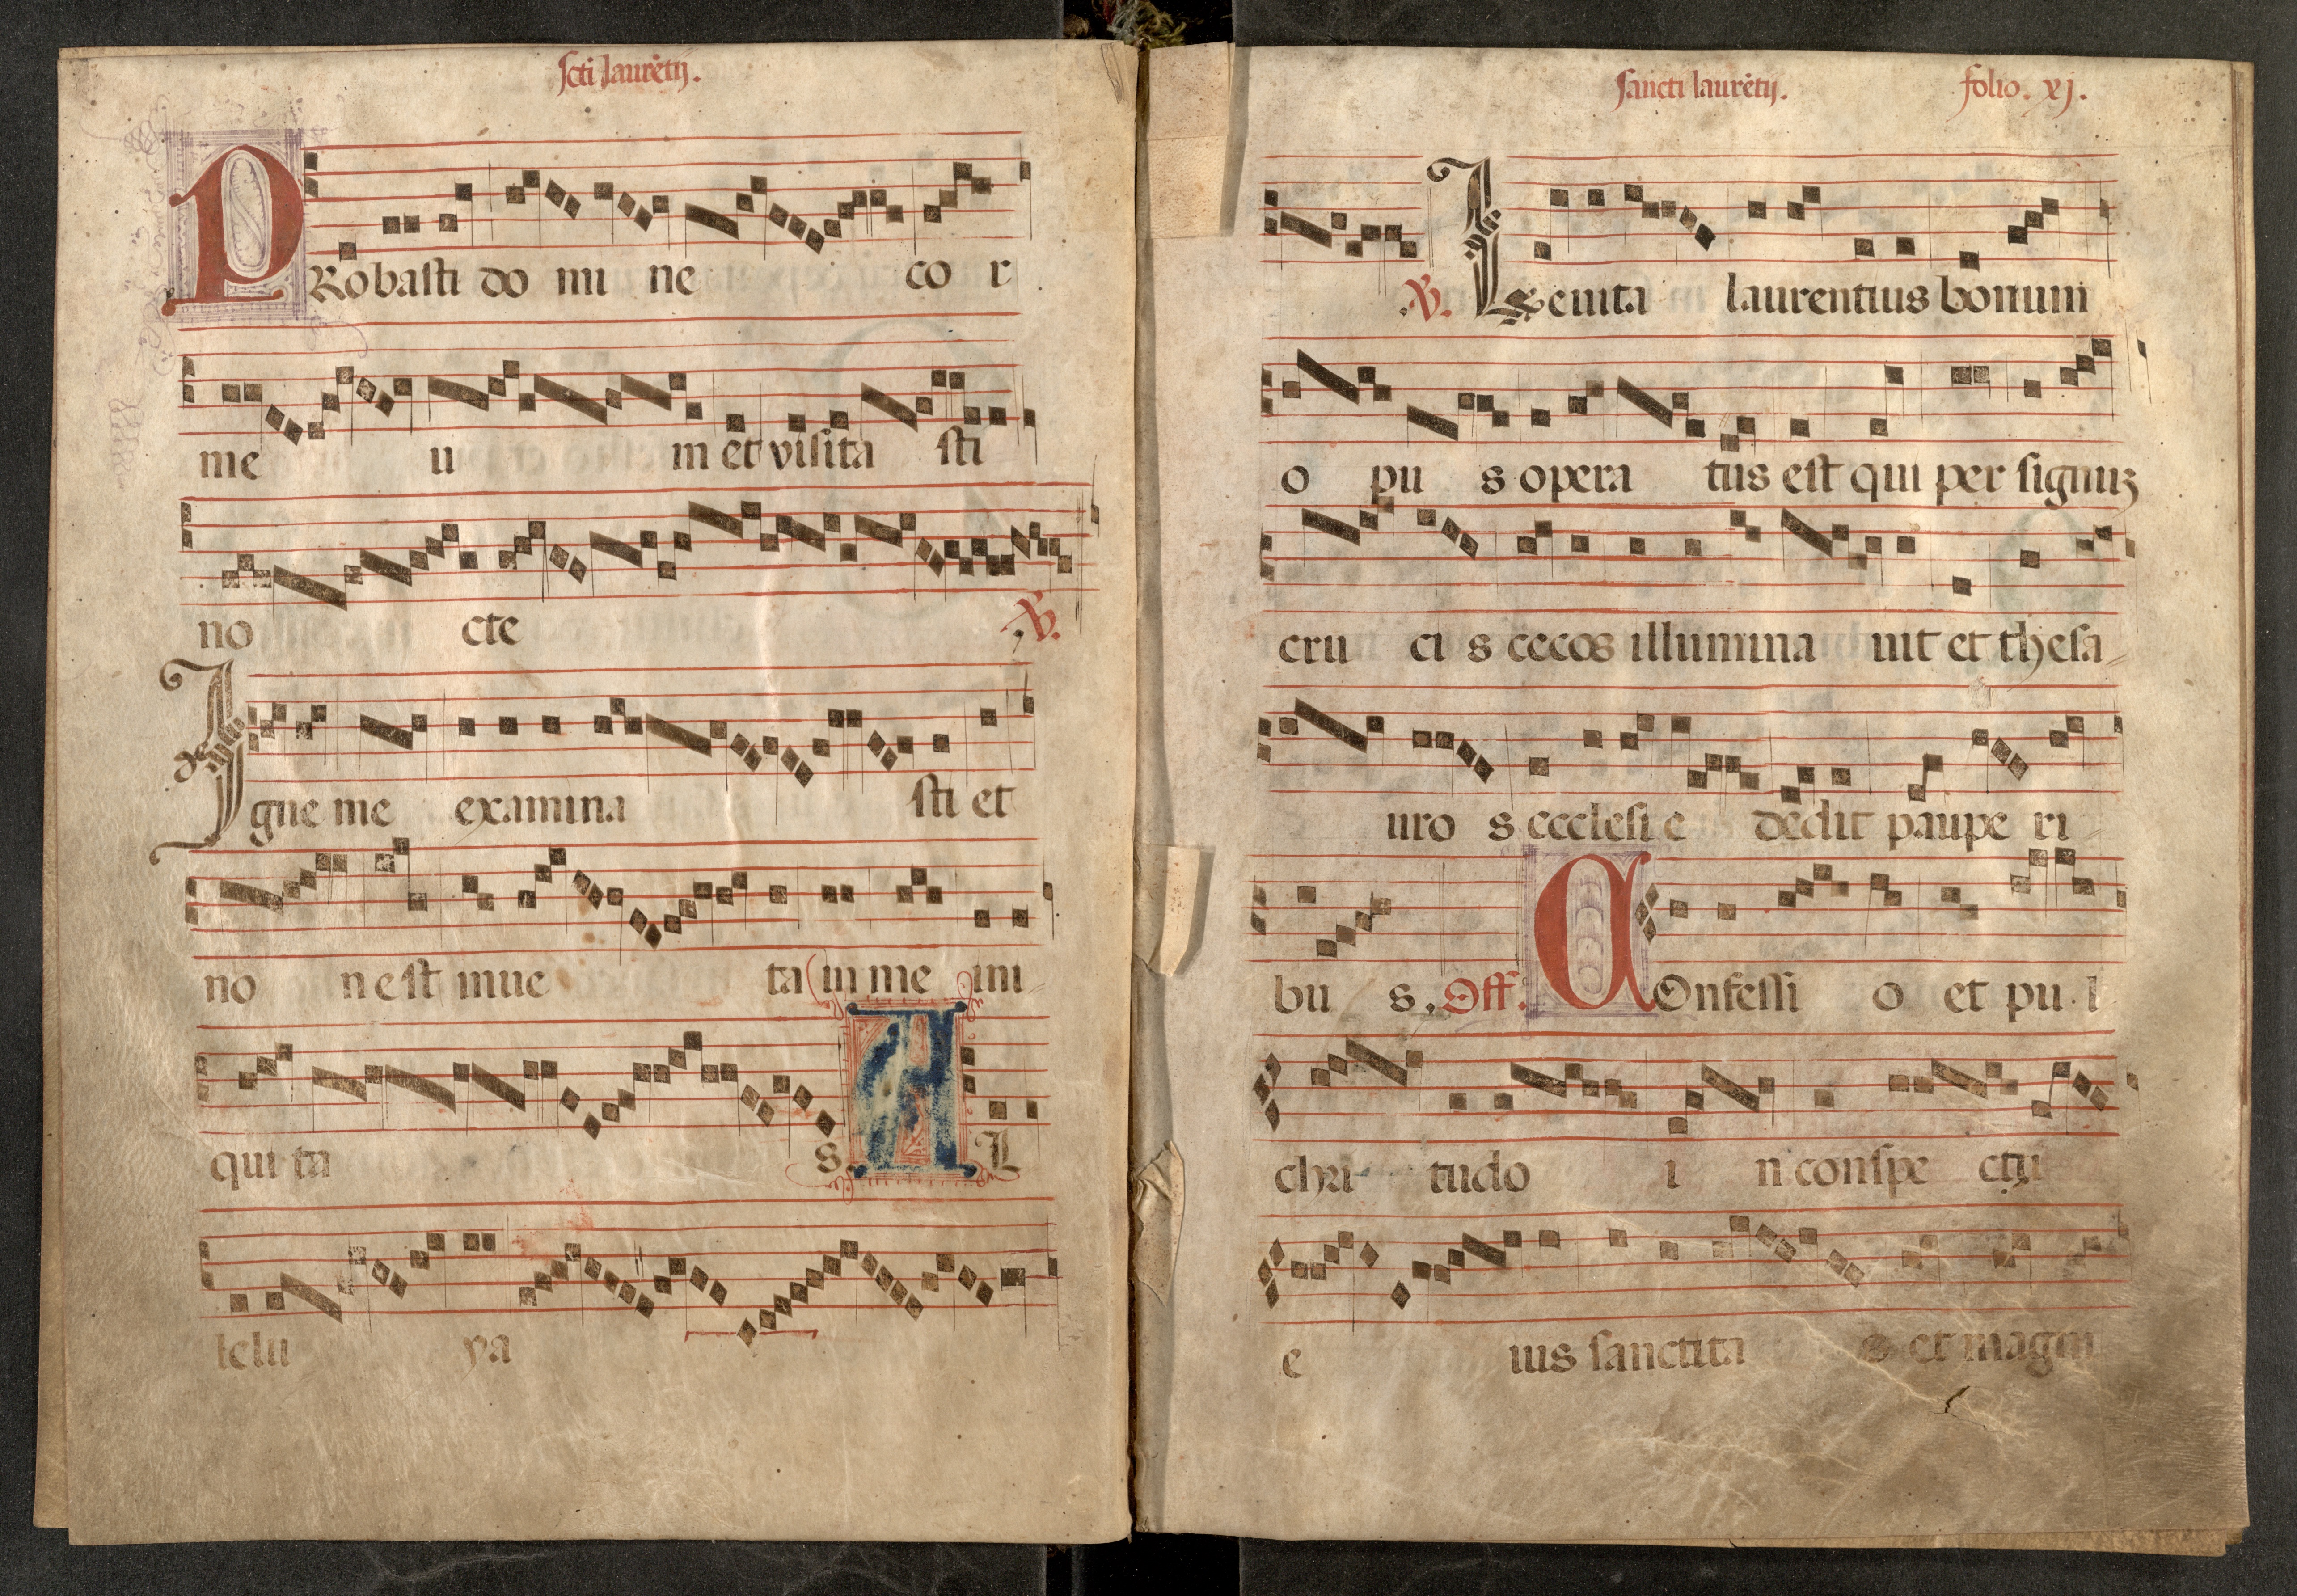 scti laurētij.
PRobasti do mi ne co r
me u m et visita sti
no cte ℣.
Igne me examina sti et
no n est inue ta in me ini
qui ta s. AL
lelu ya
sancti laurētij. folio. xj.
℣. Leuita laurentius bonum
o pu s opera tus est qui per signuꝫ
cru ci s cecos illumina uit et thesa
uro s ecclesi e dedit paupe ri
bu s. Off. COnfessi o et pu l
chri tudo i n conspe ctu
e ius sanctita s et magni